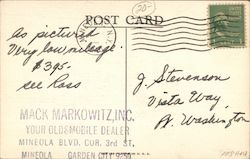 20-
POST CARD
As pictured
Very low mileage.
$395-
see Ross
J. Stevenson
Vista Way,
Pt. Washington
MACK MARKOWITZ, INC.
YOUR OLDSMOBILE DEALER
MINEOLA BLVD. COR. 3rd ST.
MINEOLA GARDEN CITY